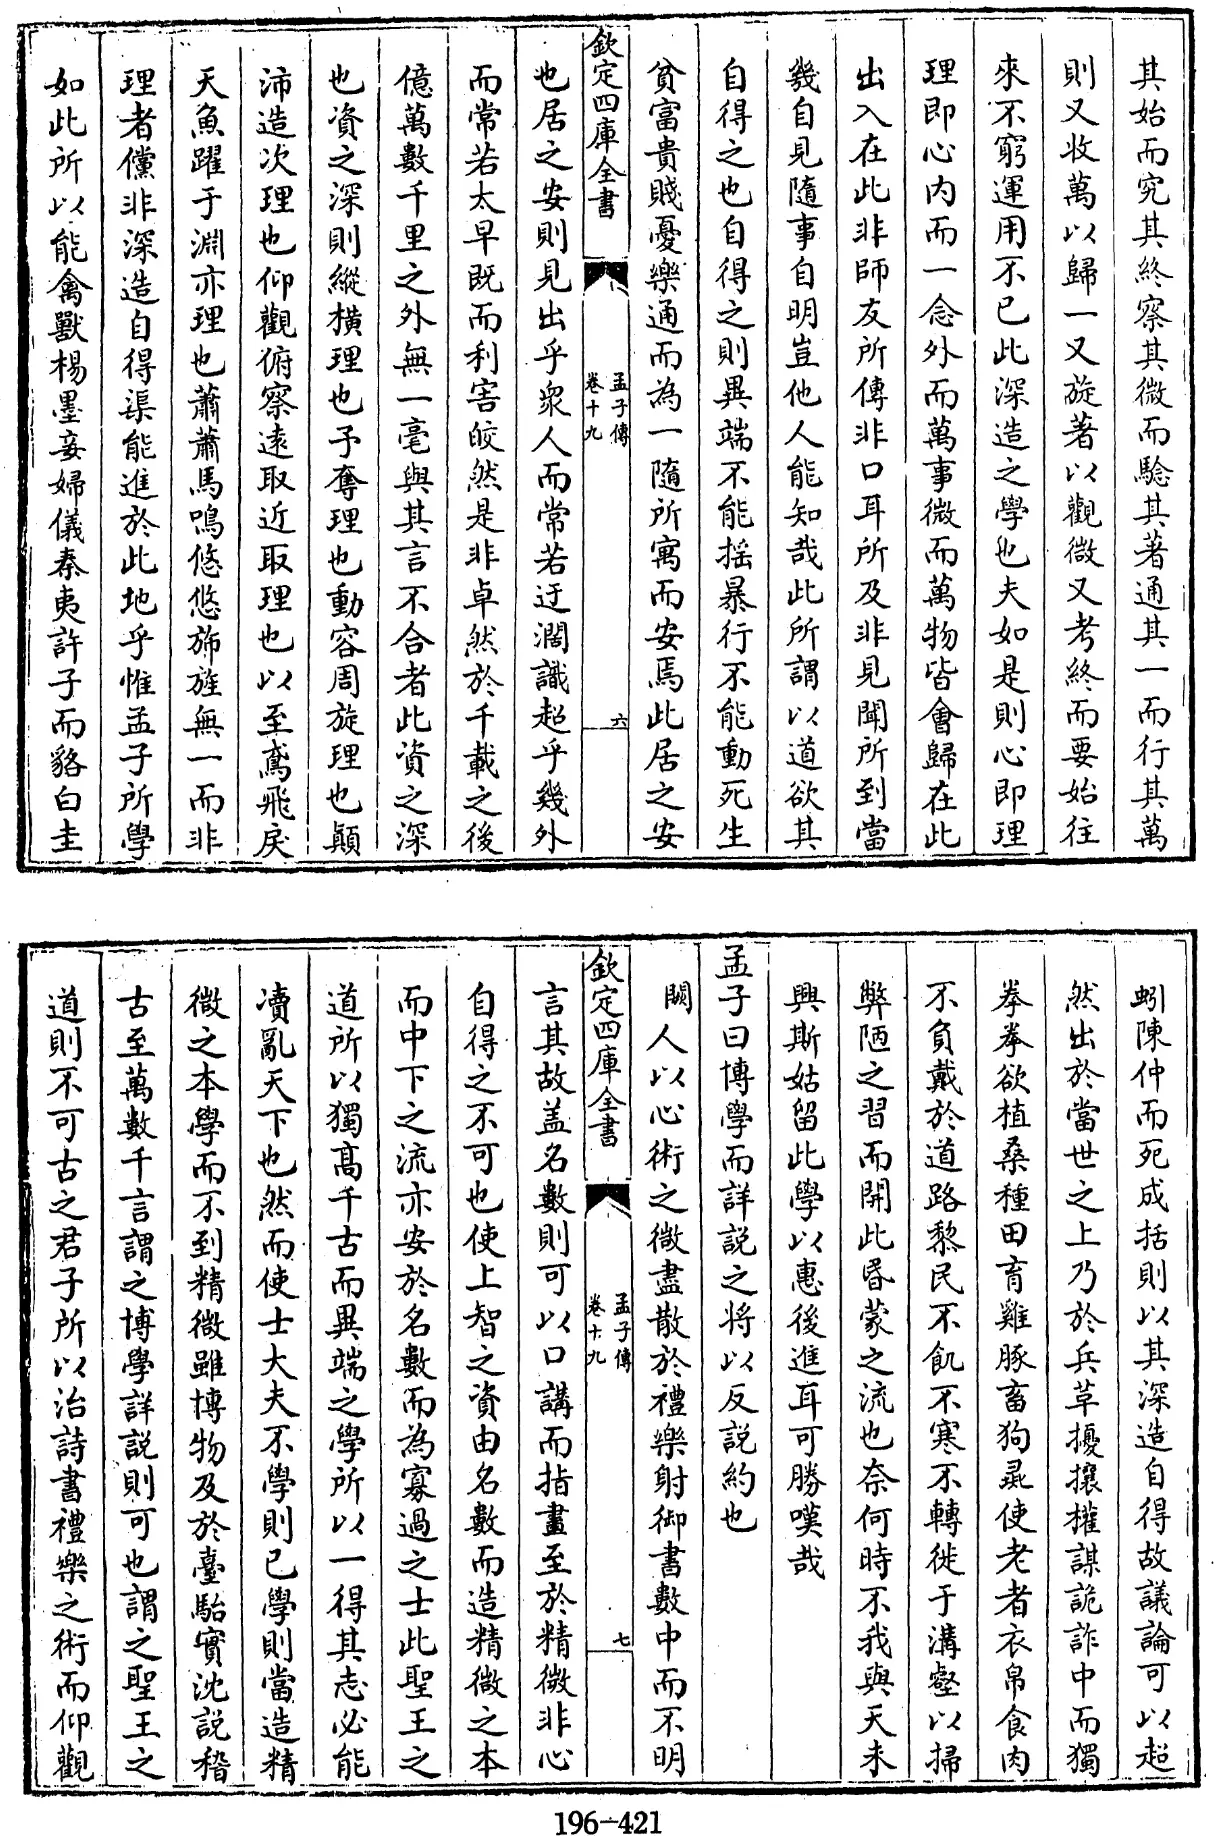 其始而究其終察其微而驗其著通其一而行其萬
則又收萬以歸一又旋著以觀微又考終而要始往
來不窮運用不已此深造之學也夫如是則心即理
理即心內而一念外而萬事微而萬物皆會歸在此
出入在此非師友所傳非口耳所及非見聞所到當
幾自見隨事自明豈他人能知哉此所謂以道欲其
自得之也自得之則異端不能搖暴行不能動死生
貧富貴賤憂樂通而為一隨所寓而安焉此居之安
欽定四庫全書
孟子傳
卷十九
六
也居之安則見出乎衆人而常若迂濶識超乎幾外
而常若太早既而利害皎然是非卓然於千載之後
億萬數千里之外無一毫與其言不合者此資之深
也資之深則縱橫理也予奪理也動容周旋理也顛
沛造次理也仰觀俯察遠取近取理也以至鳶飛戾
天魚躍于淵亦理也蕭蕭馬鳴悠悠斾旌無一而非
理者儻非深造自得渠能進於此地乎惟孟子所學
如此所以能禽獸楊墨妾婦儀秦夷許子而貉白圭
蚓陳仲而死成括則以其深造自得故議論可以超
然出於當世之上乃於兵革擾攘權謀詭詐中而獨
拳拳欲植桑種田育雞豚畜狗彘使老者衣帛食肉
不負戴於道路黎民不飢不寒不轉徙于溝壑以掃
弊陋之習而開此昏蒙之流也奈何時不我與天未
興斯姑留此學以惠後進耳可勝嘆哉
孟子曰博學而詳說之將以反說約也
闕人以心術之微盡散於禮樂射御書數中而不明
欽定四庫全書
孟子傳
卷十九
七
言其故盖名數則可以口講而指畫至於精微非心
自得之不可也使上智之資由名數而造精微之本
而中下之流亦安於名數而為寡過之士此聖王之
道所以獨高千古而異端之學所以一得其志必能
瀆亂天下也然而使士大夫不學則已學則當造精
微之本學而不到精微雖博物及於臺駘實沈說稽
古至萬數千言謂之博學詳說則可也謂之聖王之
道則不可古之君子所以治詩書禮樂之術而仰觀
196-421